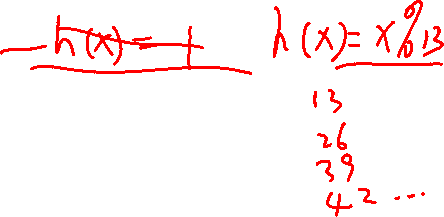 h(x) = 1
h(x) = x % 13
13
26
39
42 ...